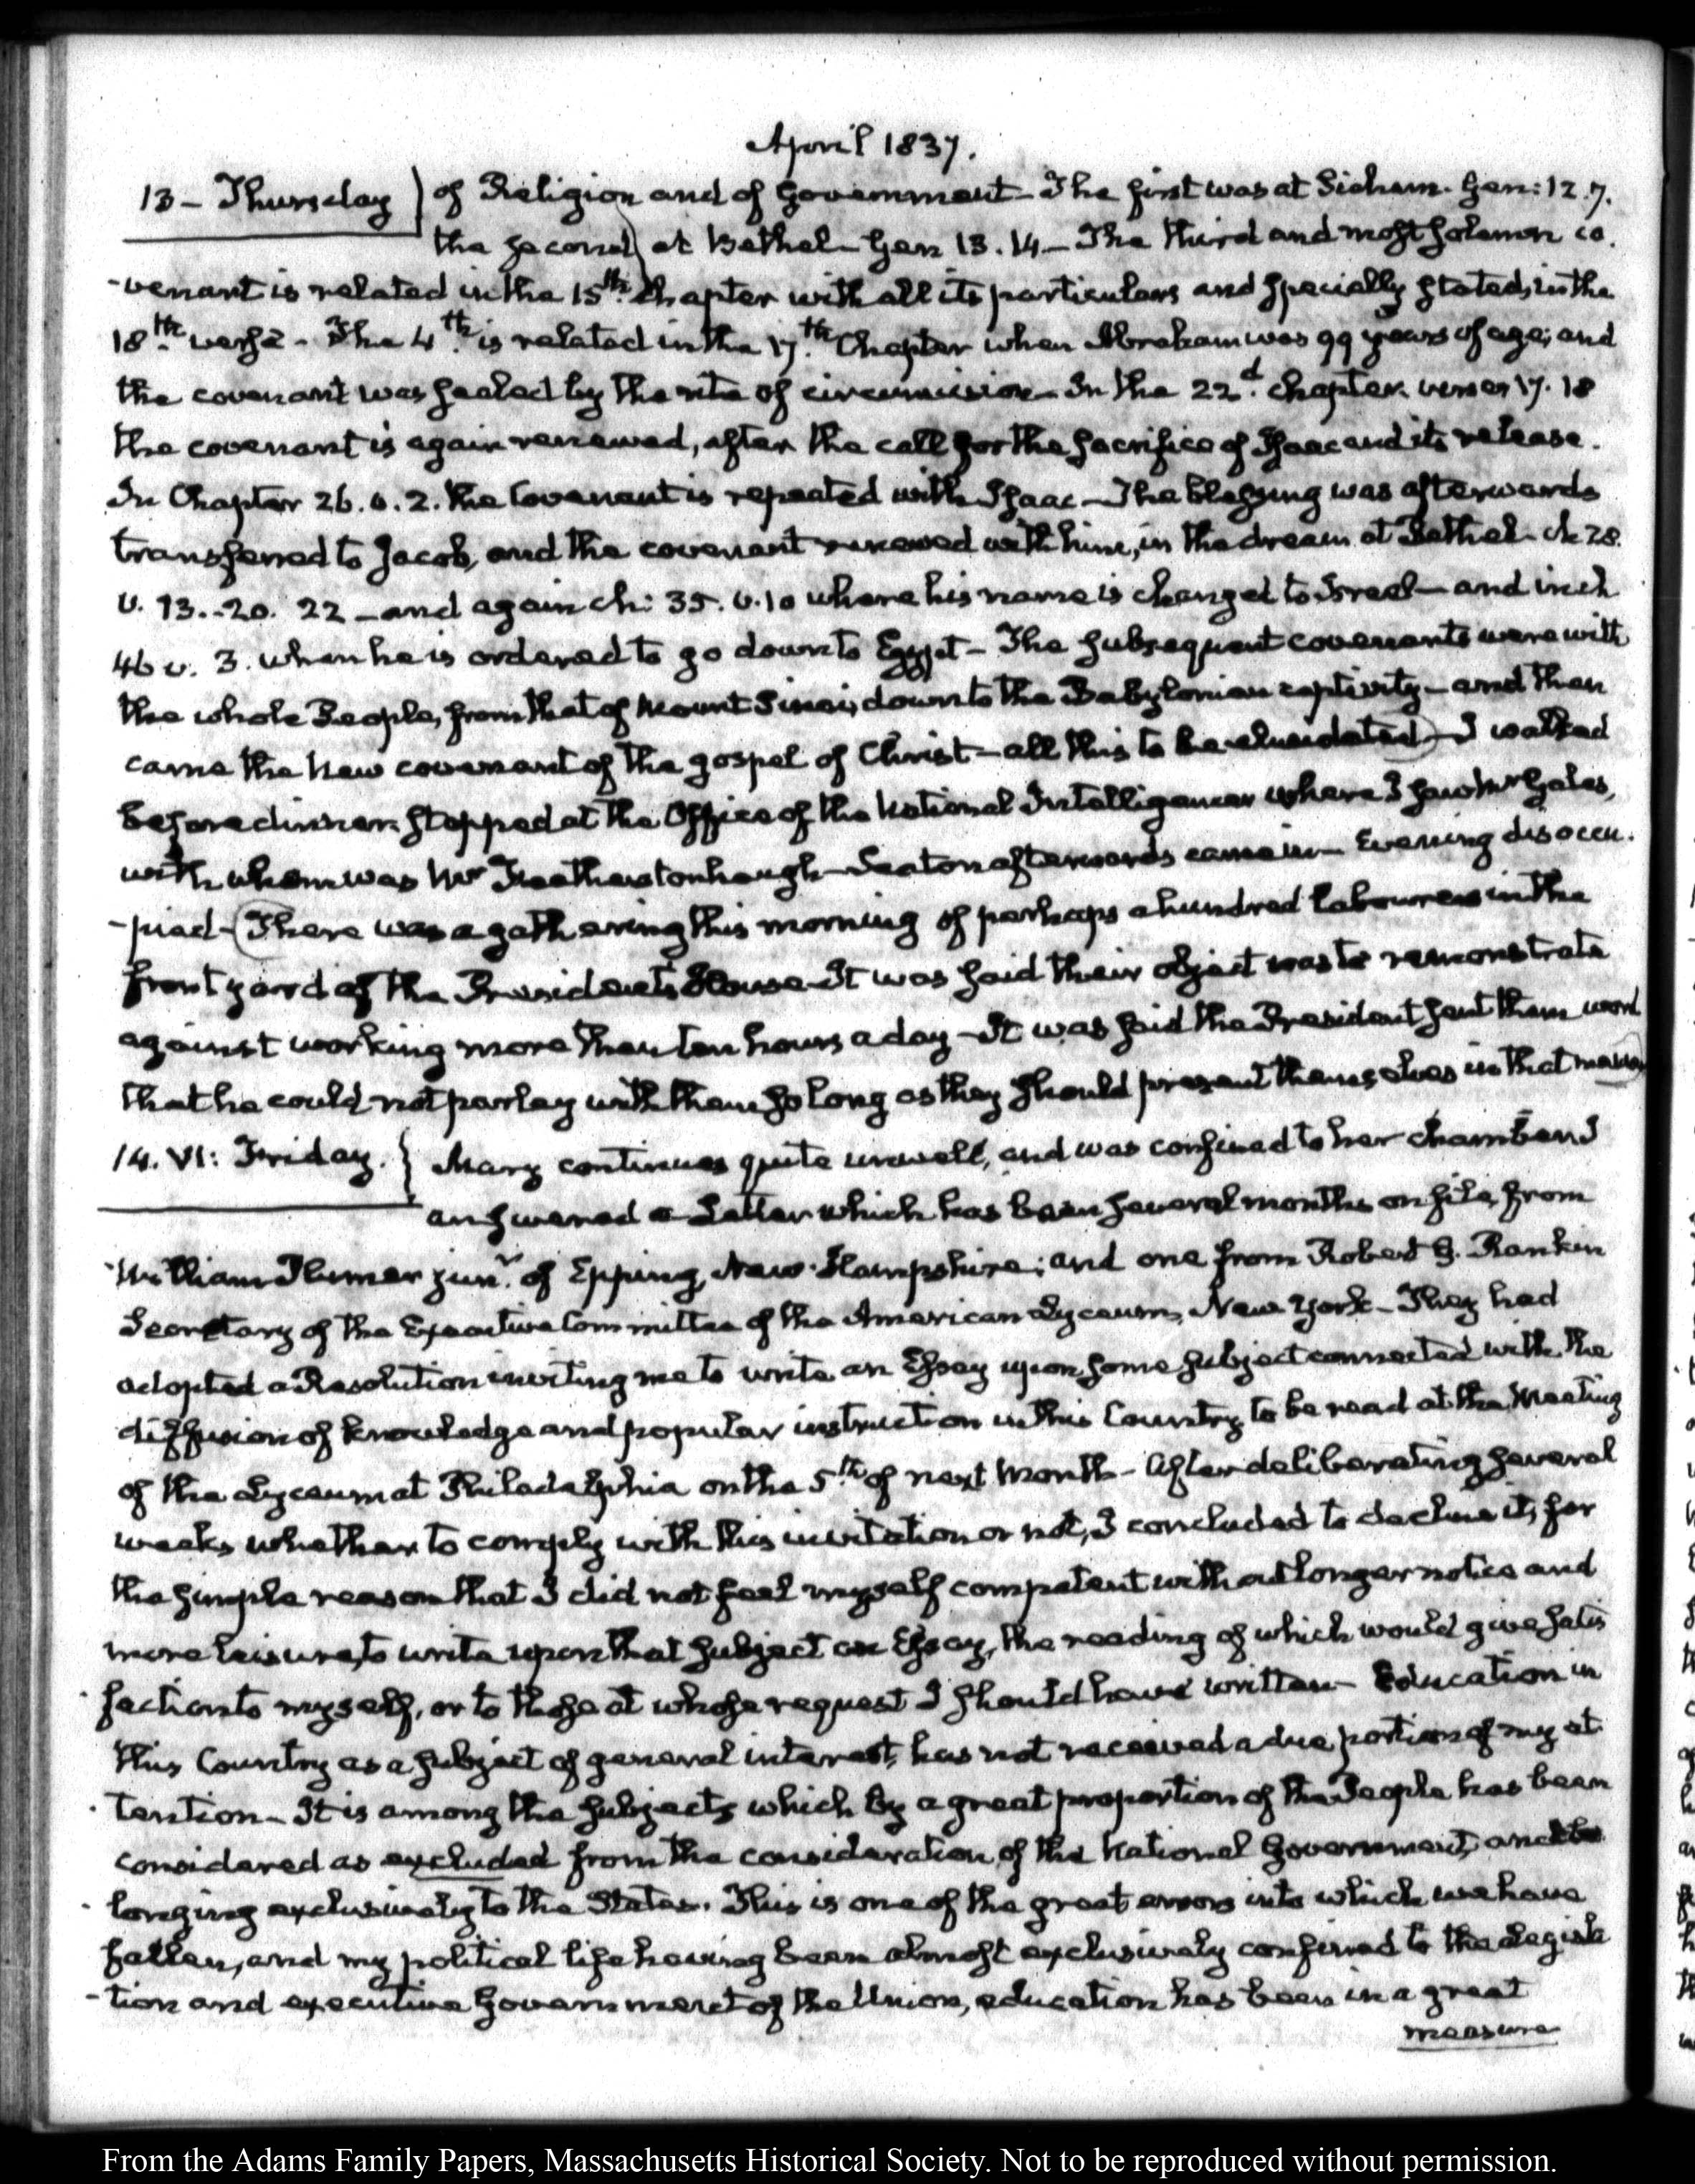 April 1837.
13 – Thursday
of Religion and of Government – The first was at Sichem. Gen: 12.7.
the second at Bethel – Gen 13.14 – The third and most solemn co.
-venant is related in the 15th. Chapter with all its particulars and specially stated, in the
18th. verse – The 4th. is related in the 17th. Chapter when Abraham was 99 years of age; and
the covenant was sealed by the rite of circumcision – In the 22d. chapter. verses 17. 18
the covenant is again renewed, after the call for the sacrifice of Isaac and its release.
In Chapter 26. v. 2. the Covenant is repeated with Isaac – The blessing was afterwards
transferred to Jacob, and the covenant renewed with him, in the dream at Bethel – ch 28.
v. 13..20. 22 – and again ch: 35. v. 10 where his name is changed to Israel – and in ch
46 v. 3. when he is ordered to go down to Egypt – The subsequent covenants were with
the whole People, from that of Mount Sinai, down to the Babylonian captivity – and then
came the New covenant of the gospel of Christ – all this to be elucidated – I walked
before dinner. stopped at the Office of the National Intelligencer where I saw Mr Gales,
with whom was Mr Featherstonhaugh – Seaton afterwards came in – Evening disoccu.
-pied – There was a gathering this morning of perhaps a hundred labourers in the
front yard of the President's House – It was said their object was to remonstrate
against working more than ten hours a day – It was said the President sent them word
that he could not parley with them so long as they should present themselves in that manner
14. VI: Friday.
Mary continues quite unwell, and was confined to her chamber. I
answered a Letter which has been several months on file, from
William Plumer junr. of Epping, New-Hampshire; and one from Robert G. Rankin
Secretary of the Executive Committee of the American Lyceum, New York – They had
adopted a Resolution inviting me to write an Essay upon some subject connected with the
diffusion of knowledge and popular instruction in this Country, to be read at the Meeting
of the Lyceum at Philadelphia on the 5th of next Month – After deliberating several
weeks, whether to comply with this invitation or not, I concluded to decline it, for
the simple reason that I did not feel myself competent without longer notice and
more leisure, to write upon that subject an Essay, the reading of which would give satis
faction to myself, or to those at whose request I should have written – Education in
this Country as a subject of general interest, has not received a due portion of my at
tention – It is among the subjects which by a great proportion of the People has been
considered as excluded from the consideration of the National Government, and be
longing exclusively to the States. This is one of the great errors into which we have
fallen, and my political life having been almost exclusively confined to the Legisla
-tion and executive Government of the Union, education has been in a great
measure
From the Adams Family Papers, Massachusetts Historical Society. Not to be reproduced without permission.